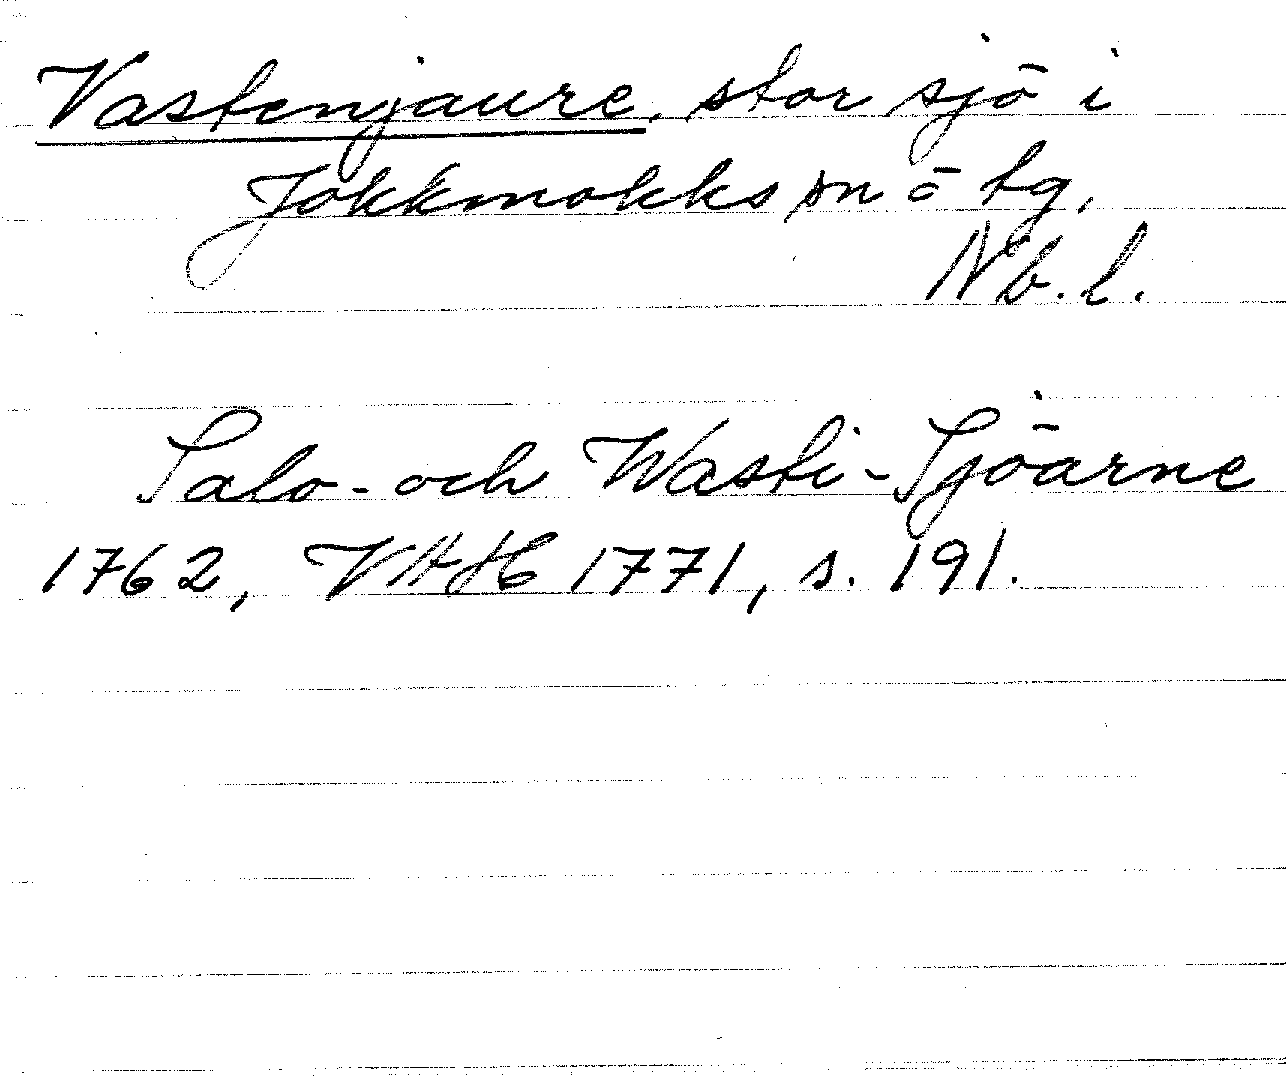 Vastenjaure, stor sjö i
Jokkmokks sn o tg,
Nb. l.
Salo- och Wasti-Sjöarne
1762, VAH 1771, s. 191.